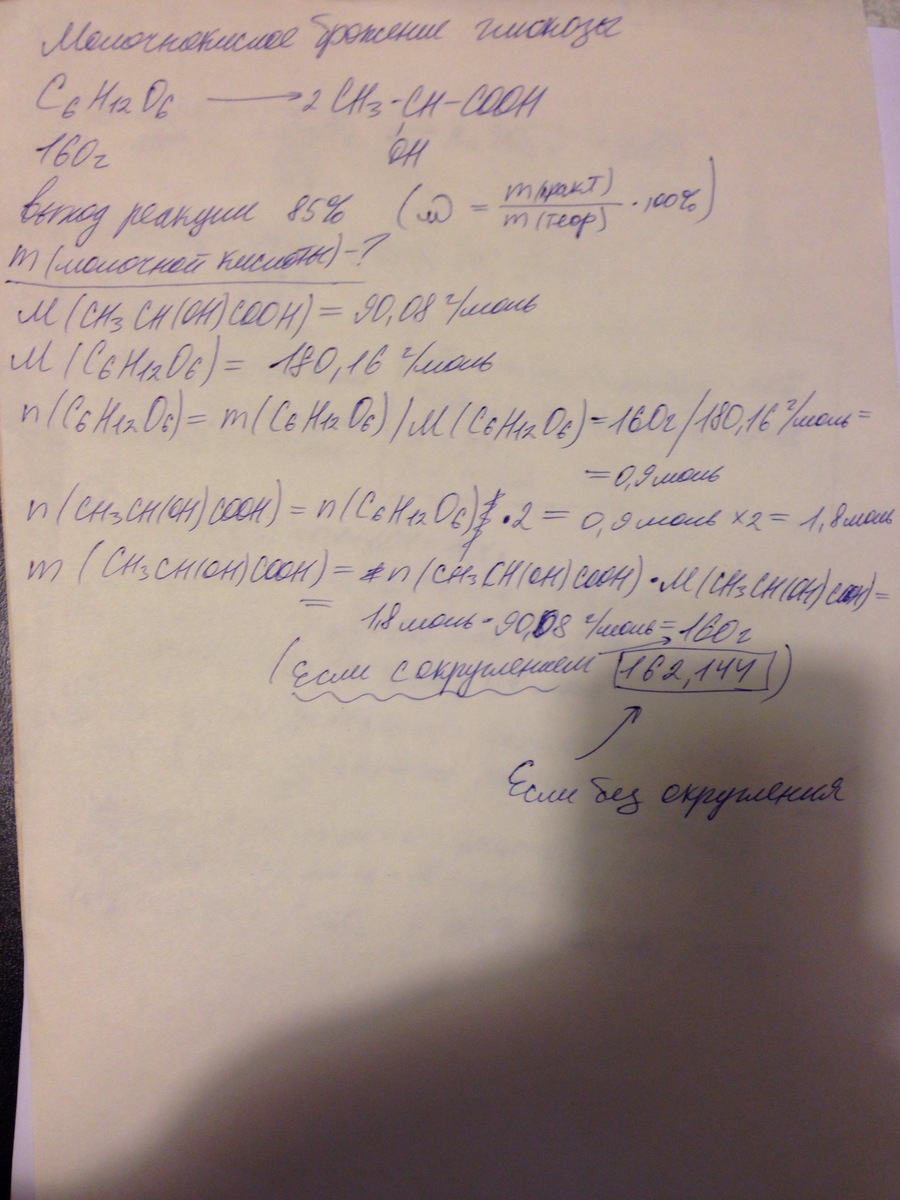 Молочнокислое брожение глюкозы
C₆H₁₂O₆ ⟶ 2 CH₃-CH-COOH
160г OH
выход реакции 85% (ω = m(практ)/m(теор) · 100%)
m (молочной кислоты) - ?
M (CH₃CH(OH)COOH) = 90,08 г/моль
M (C₆H₁₂O₆) = 180,16 г/моль
n (C₆H₁₂O₆) = m (C₆H₁₂O₆) / M (C₆H₁₂O₆) = 160г/180,16 г/моль =
= 0,9 моль
n (CH₃CH(OH)COOH) = n (C₆H₁₂O₆) · 2 = 0,9 моль × 2 = 1,8 моль
m (CH₃CH(OH)COOH) = n (CH₃CH(OH)COOH) · M (CH₃CH(OH)COOH) =
= 1,8 моль · 90,08 г/моль = 160г
(Если с округлением 162,144)
Если без округления